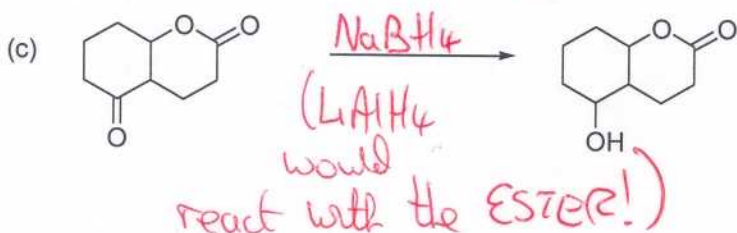 (c)
O
O
O
NaBH4
(LiAlH4
would
react with the ESTER!)
O
O
OH